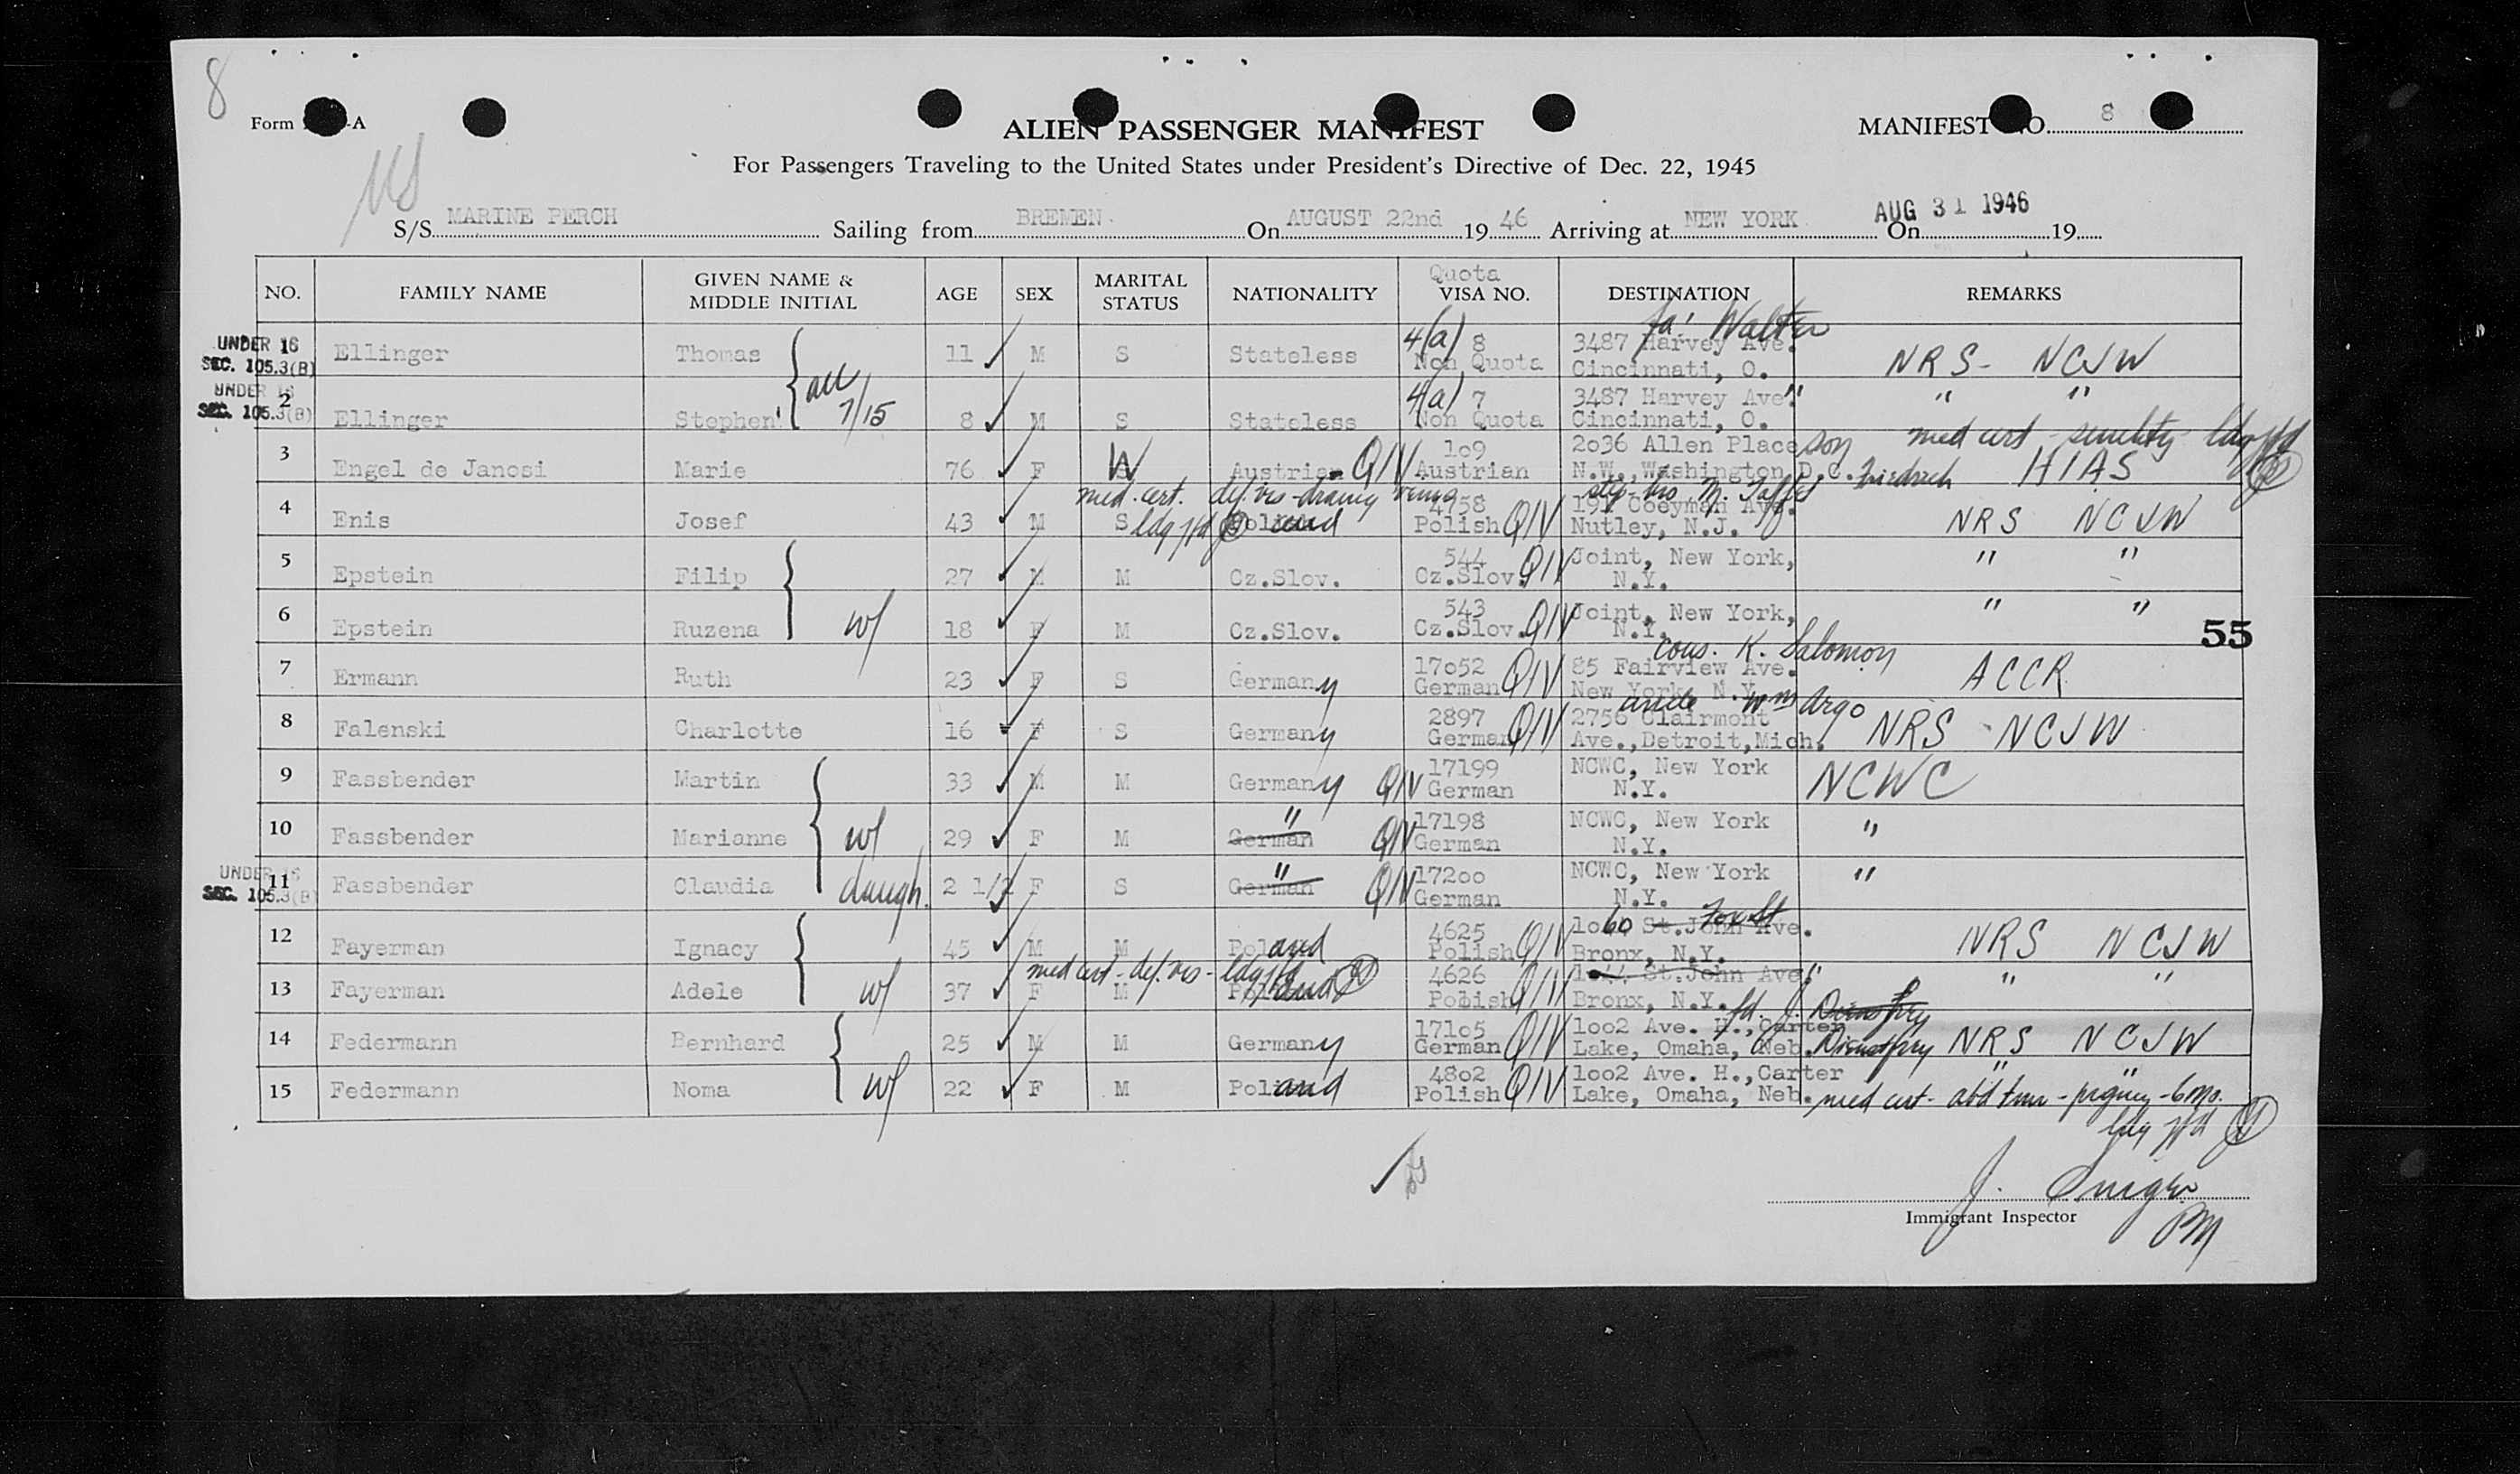 8
Form -A
ALIEN PASSENGER MANIFEST
MANIFEST NO. 8
For Passengers Traveling to the United States under President's Directive of Dec. 22, 1945
S/S MARINE PERCH Sailing from BREMEN. On AUGUST 22nd 19 46 Arriving at NEW YORK On AUG 31 1946 19
NO. FAMILY NAME GIVEN NAME & MIDDLE INITIAL AGE SEX MARITAL STATUS NATIONALITY Quota VISA NO. DESTINATION REMARKS
fa! Walter
UNDER 16 SEC. 105.3(B) 1 Ellinger Thomas 11 M S Stateless 4(a) 8 Non Quota 3487 Harvey Ave. Cincinnati, O. NRS - NCJW
acc 7/15
UNDER 16 SEC. 105.3(B) 2 Ellinger Stephen 8 M S Stateless 4(a) 7 Non Quota 3487 Harvey Ave. " Cincinnati, O. " "
med cert - senility
3 Engel de Janosi Marie 76 F W Austria QIV 109 Austrian 2036 Allen Place N.W., Washington, D.C. son Friedrich HIAS
med. cert. def. vis -
4 Enis Josef 43 M S Poland 4758 Polish QIV Coeyman Ave. Nutley, N.J. NRS NCJW
5 Epstein Filip 27 M M Cz.Slov. 544 Cz.Slov. QIV Joint, New York, N.Y. " "
6 Epstein Ruzena w/ 18 F M Cz.Slov. 543 Cz.Slov. QIV Joint, New York, N.Y. " "
55
cous. K. Salomon
7 Ermann Ruth 23 F S Germany 17052 German QIV 85 Fairview Ave. New York, N.Y. ACCR
uncle Wm Argo
8 Falenski Charlotte 16 F S Germany 2897 German QIV 2756 Clairmont Ave., Detroit, Mich. NRS - NCJW
9 Fassbender Martin 33 M M Germany QIV 17199 German NCWC, New York N.Y. NCWC
10 Fassbender Marianne w/ 29 F M German " QIV 17198 German NCWC, New York N.Y. "
UNDER 16 SEC. 105.3(B) 11 Fassbender Claudia daugh. 2 1/2 F S German " QIV 17200 German NCWC, New York N.Y. "
12 Fayerman Ignacy 45 M M Poland 4625 Polish QIV 1060 St. John Ave. Fox St Bronx, N.Y. NRS NCJW
med cert - def. vis -
13 Fayerman Adele w/ 37 F M Poland 4626 Polish QIV St. John Ave. " Bronx, N.Y. " "
14 Federmann Bernhard 25 M M Germany 17105 German QIV 1002 Ave. H., Carter Lake, Omaha, Neb. NRS NCJW
15 Federmann Noma w/ 22 F M Poland 4802 Polish QIV 1002 Ave. H., Carter Lake, Omaha, Neb. " "
med cert - abd - 6 mo.
Immigrant Inspector